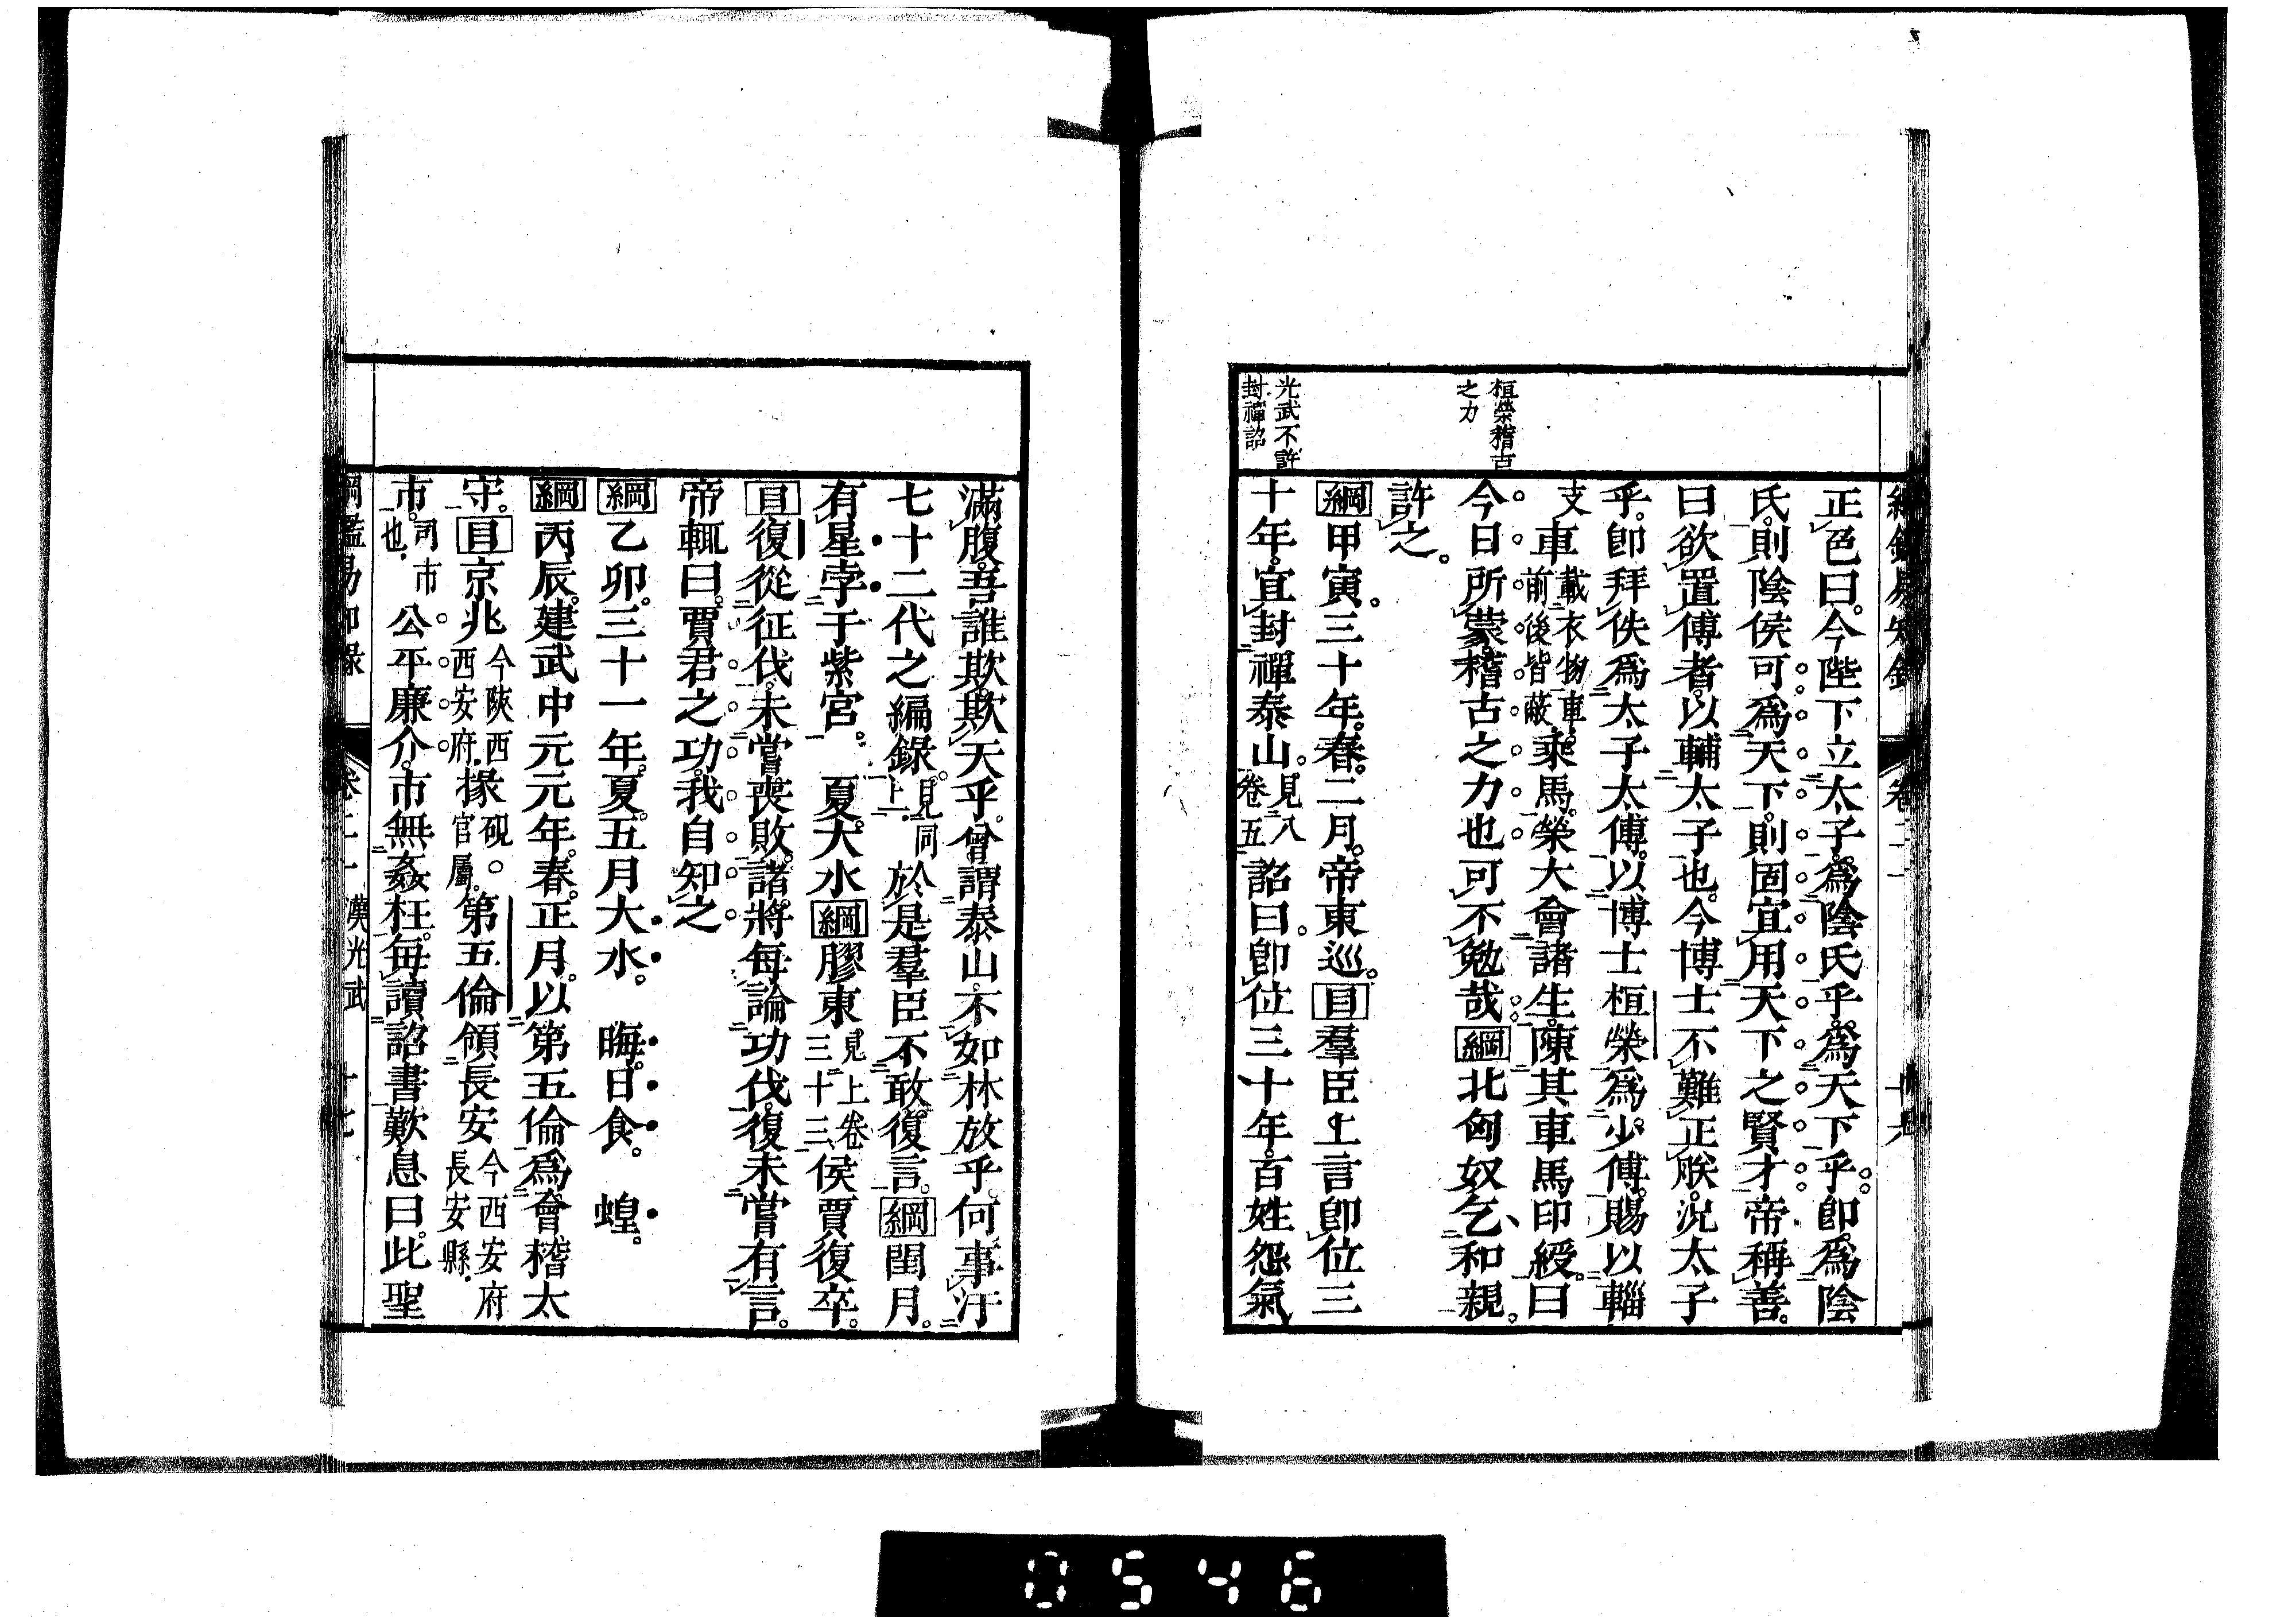 桓榮稽古
之力
光武不許
封禪詔
正色曰。今陛下立太子。爲陰氏乎。爲天下乎。卽爲陰
氏。則陰侯可爲天下。則固宜用天下之賢才。帝稱善。
曰欲置傅者。以輔太子也。今博士不難正朕。況太子
乎。卽拜佚爲太子太傅。以博士桓榮爲少傅。賜以輜
支車載衣物車。前後皆蔽乘馬。榮大會諸生。陳其車馬印綬。曰
今日所蒙。稽古之力也可不勉哉。綱北匈奴乞和親。
許之。
綱甲寅。三十年。春。二月。帝東巡。目羣臣上言。卽位三
十年。宜封禪泰山。見八卷五詔曰。卽位三十年。百姓怨氣
滿腹。吾誰欺。欺天乎。曾謂泰山。不如林放乎。何事汙
七十二代之編錄。見同上。於是羣臣不敢復言。綱閏月。
有星孛于紫宮。夏。大水綱膠東見上卷三十三侯賈復卒。
目復從征伐。未嘗喪敗。諸將每論功伐。復未嘗有言。
帝輒曰。賈君之功。我自知之
綱乙卯。三十一年。夏。五月大水。晦。日食。蝗。
綱丙辰。建武中元元年。春。正月。以第五倫爲會稽太
守。目京兆今陝西西安府。掾硯。官屬。第五倫領長安今西安府長安縣。
市。司市也。公平廉介。市無姦枉。每讀詔書歎息曰。此聖
綱鑑易知錄 卷二十 漢光武 十七